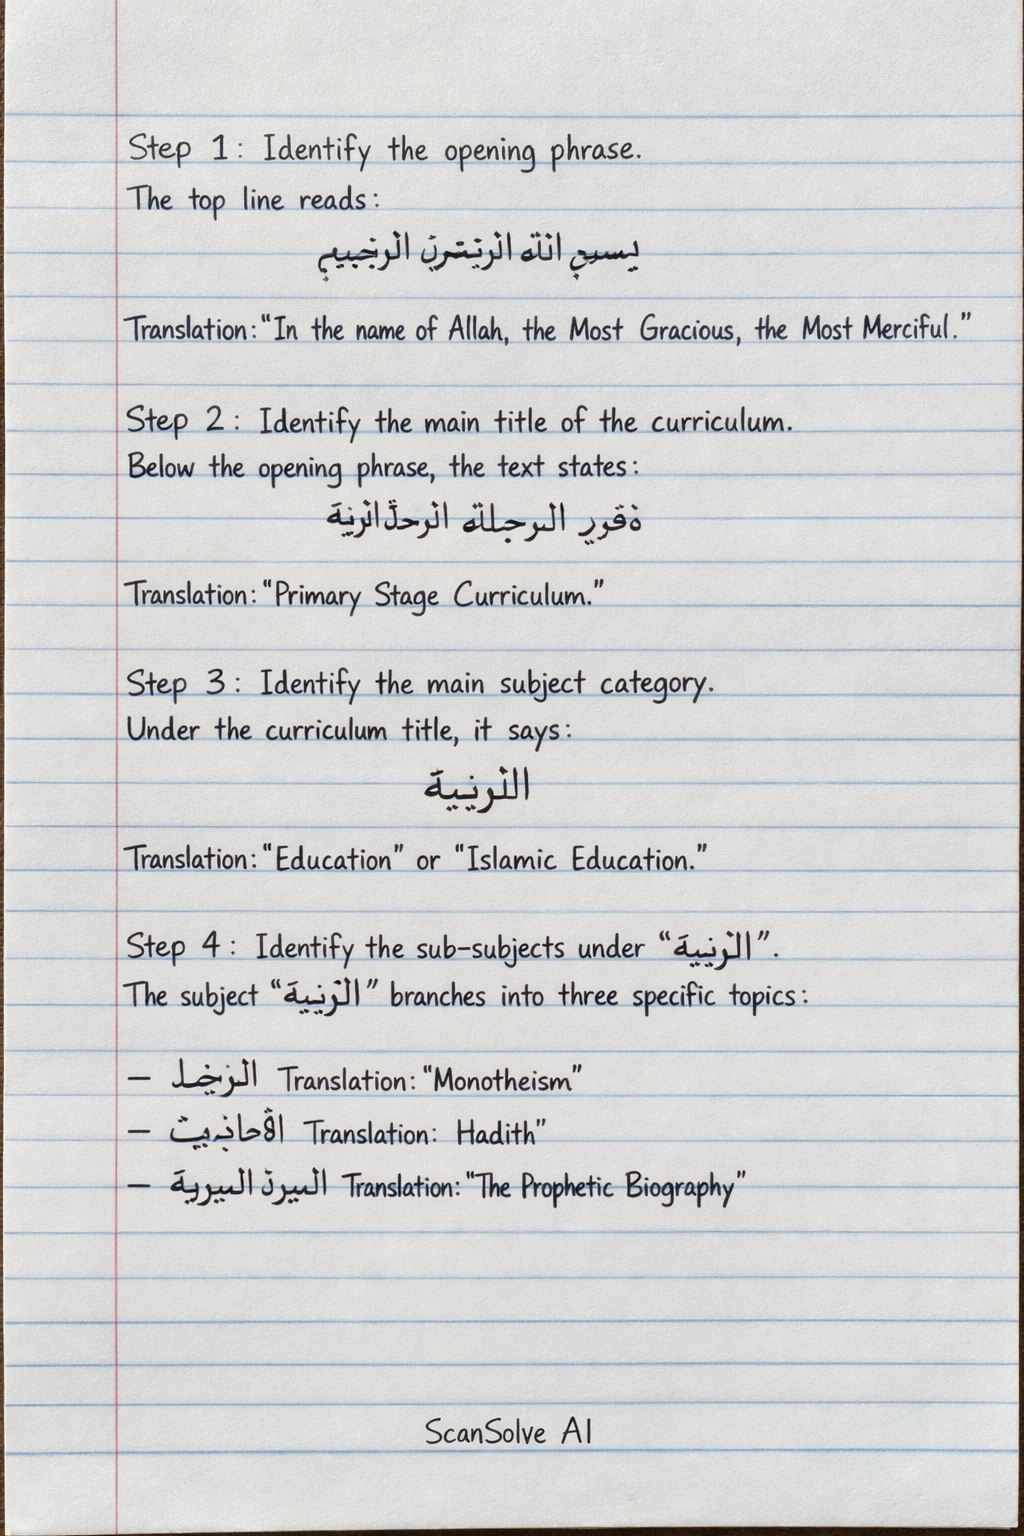 Step 1: Identify the opening phrase.
The top line reads:
Translation: “In the name of Allah, the Most Gracious, the Most Merciful.”
Step 2: Identify the main title of the curriculum.
Below the opening phrase, the text states:
Translation: “Primary Stage Curriculum.”
Step 3: Identify the main subject category.
Under the curriculum title, it says:
Translation: “Education” or “Islamic Education.”
Step 4: Identify the sub-subjects under “”.
The subject “” branches into three specific topics:
— Translation: “Monotheism”
— Translation: Hadith”
— Translation: “The Prophetic Biography”
ScanSolve AI